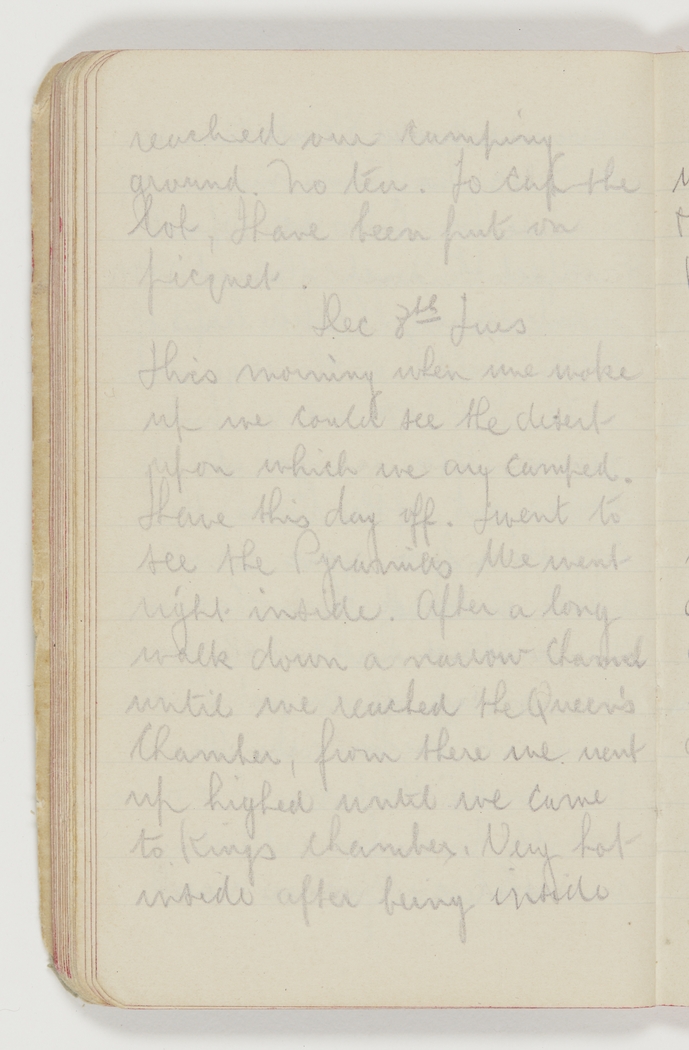 reached our camping
ground. No tea. To cap the
lot, I have been put on
picquet.
Dec 8th Tues
This morning when we woke
up we could see the desert
upon which we are camped.
I have this day off. I went to
see the Pyramids We went
right inside. After a long
walk down a narrow Channel
until we reached the Queen's
Chamber, from there we went
up highed until we came
to Kings Chamber. Very hot
inside after being inside